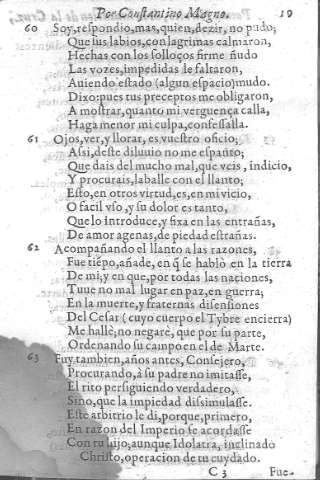 Por Constantino Magno. 19
60 Soy, respondio, mas, quien, dezir, no pudo;
Que sus labios, con lagrimas calmaron,
Hechas con los solloços firme ñudo
Las vozes, impedidas le faltaron,
Auiendo estado (algun espacio) mudo.
Dixo: pues tus preceptos me obligaron,
A mostrar, quanto mi verguença calla,
Haga menor mi culpa, confessalla.
61 Ojos, ver, y llorar, es vuestro oficio;
Assi, deste diluuio no me espanto;
Que dais del mucho mal, que veis, indicio,
Y procurais, laballe con el llanto;
Esto, en otros virtud, es, en mi vicio,
O facil vso, y su dolor es tanto,
Que lo introduce, y fixa en las entrañas,
De amor agenas, de piedad estrañas.
62 Acompañando el llanto a las razones,
Fue tiẽpo, añade, en q̃ se hablò en la tierra
De mi; y en que, por todas las naciones,
Tuue no mal lugar en paz, en guerra;
En la muerte, y fraternas disensiones
Del Cesar (cuyo cuerpo el Tybre encierra)
Me hallè, no negarè, que por su parte,
Ordenando su campo en el de Marte.
63 Fuy tambien, años antes, Consejero,
Procurando, à su padre no imitasse,
El rito persiguiendo verdadero,
Sino, que la impiedad dissimulasse.
Este arbitrio le di, porque, primero,
En razon del Imperio se acordasse
Con tu hijo, aunque Idolatra, inclinado
Christo, operacion de tu cuydado.
C 3 Fue-